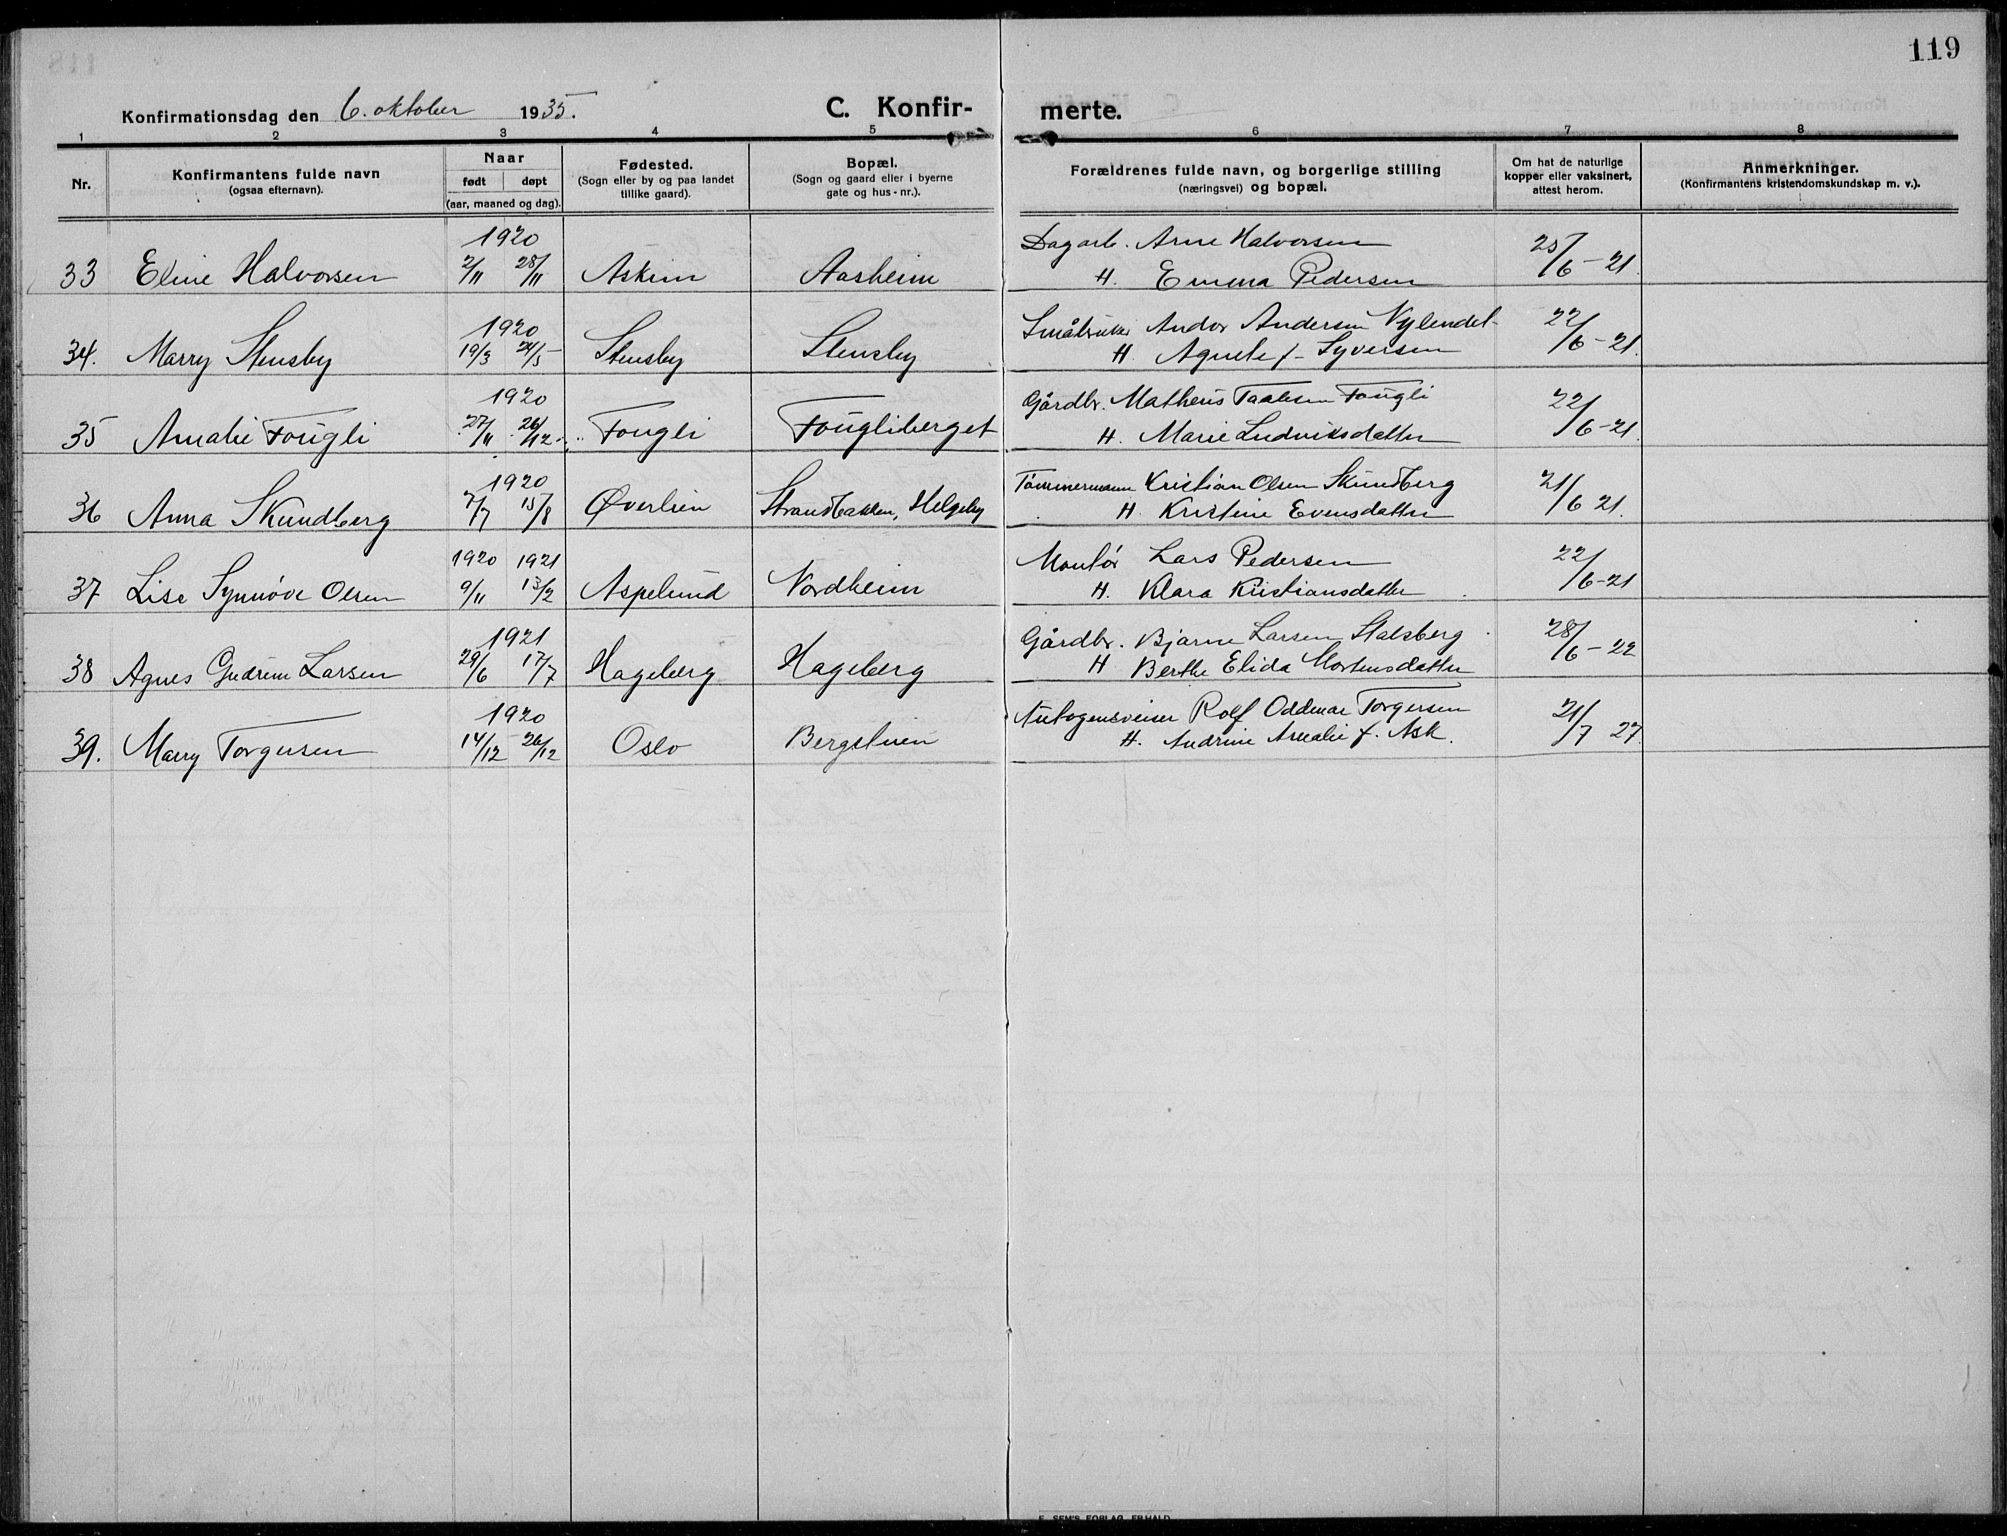 119
Konfirmationsdag den 6. oktober 1935.
C. Konfir-
merte.
1 2 3 4 5 6 7 8
Nr.
Konfirmantens fulde navn
(ogsaa efternavn).
Naar
født døpt
(aar, maaned og dag).
Fødested.
(Sogn eller by og paa landet
tillike gaard).
Bopæl.
(Sogn og gaard eller i byerne
gate og hus-nr.).
Forældrenes fulde navn, og borgerlige stilling
(næringsvei) og bopæl.
Om hat de naturlige
kopper eller vaksinert,
attest herom.
Anmerkninger.
(Konfirmantens kristendomskundskap m. v.).
1920 Dagarb. Arne Halvorsen 25/6-21.
33 Eline Halvorsen 2/11 28/11 Askim Aasheim H. Emma Pedersen
1920 Småbruker Andor Andersen Nylendet 22/6-21.
34. Marry Stensby 19/3 24/5 Stensby Stensby H. Agnete f. Syversen
1920 Gårdbr. Matheus Taalesen Fougli 22/6-21.
35 Amalie Fougli 27/11 26/12 Fougli Fougliberget H. Marie Ludviksdatter
1920 Tömmermann Kristian Olsen Skundberg 21/6 21.
36 Anna Skundberg 7/7 15/8 Øverlien Strandbakken, Helgeby H. Kristine Evensdatter
1920 1921 Montør Lars Pedersen 22/6-21
37 Lise Synnöve Olsen 9/11 13/2 Aspelund Nordheim H. Klara Kristiansdatter
1921 Gårdbr. Bjarne Larsen Stalsberg 28/6-22
38 Agnes Gudrun Larsen 29/6 17/7 Hageberg Hageberg H Berthe Elida Mortensdatter
1920 Autogensveiser Rolf Oddmar Torgersen 21/7 27.
39. Marry Torgersen 14/12 26/12 Oslo Bergstuen H. Andrine Amalie f. Ask.
E. SEM'S FORLAG, FR.HALD